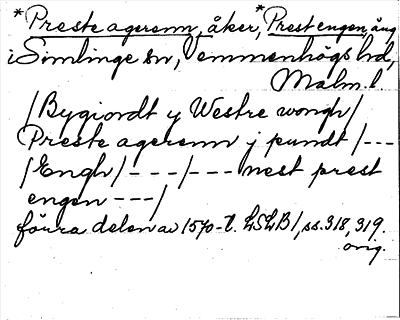 *Preste agerenn, åker, *Prest engen, äng
i Simlinge sn, Vemmenhögs hd,
Malm. l
/Bygiordt y Westre wongh/
Preste agerenn j pundt /---
/Engh/---/--- nest prest
engen ---/
förra delen av 1570-t. LSLB1, ss. 318, 319.
orig.